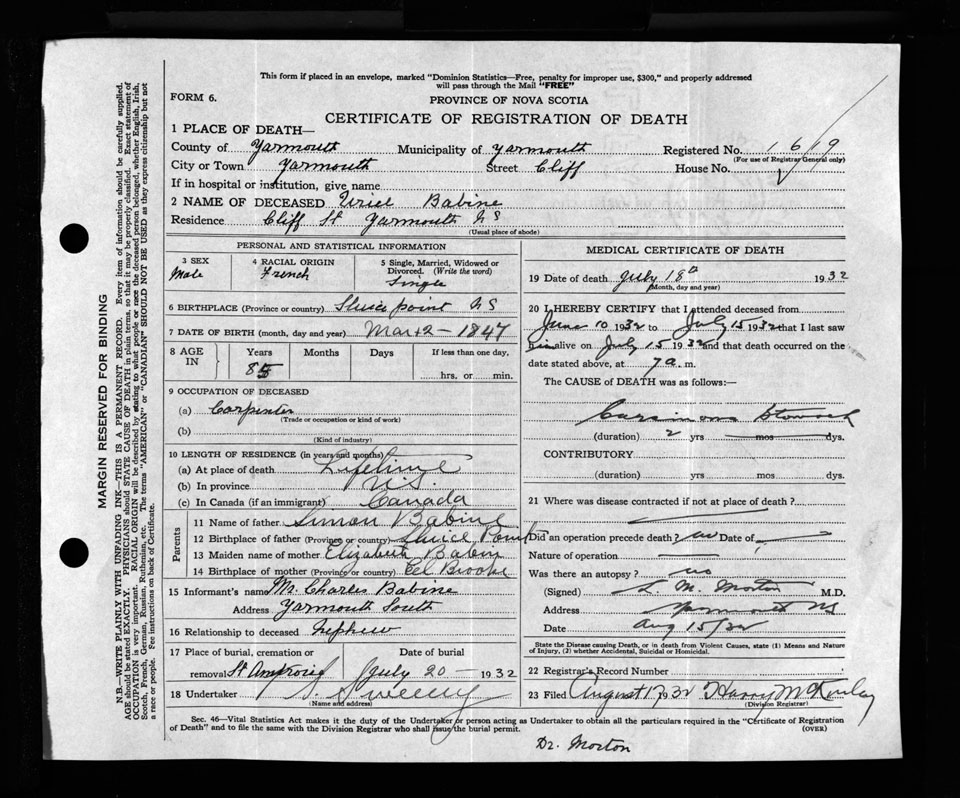 This form if placed in an envelope, marked "Dominion Statistics—Free, penalty for improper use, $300," and properly addressed
will pass through the Mail "FREE"
FORM 6.
PROVINCE OF NOVA SCOTIA
CERTIFICATE OF REGISTRATION OF DEATH
1 PLACE OF DEATH—
County of Yarmouth Municipality of Yarmouth Registered No. 1619
(For use of Registrar General only)
City or Town Yarmouth Street Cliff House No.
If in hospital or institution, give name
2 NAME OF DECEASED Uriel Babine
Residence Cliff St Yarmouth N S
(Usual place of abode)
PERSONAL AND STATISTICAL INFORMATION
3 SEX Male
4 RACIAL ORIGIN French
5 Single, Married, Widowed or Divorced. (Write the word) Single
6 BIRTHPLACE (Province or country) Sluice point N S
7 DATE OF BIRTH (month, day and year) Mar 2 – 1847
8 AGE IN Years Months Days If less than one day,
85 hrs. or min.
9 OCCUPATION OF DECEASED
(a) Carpenter
(Trade or occupation or kind of work)
(b)
(Kind of industry)
10 LENGTH OF RESIDENCE (in years and months)
(a) At place of death Lifetime
(b) In province N.S.
(c) In Canada (if an immigrant) Canada
Parents
11 Name of father Simon Babine
12 Birthplace of father (Province or country) Sluice Point
13 Maiden name of mother Elizabeth Babin
14 Birthplace of mother (Province or country) Eel Brooke
15 Informant's name Mr. Charles Babine
Address Yarmouth South
16 Relationship to deceased Nephew
17 Place of burial, cremation or removal St Date of burial July 20 – 1932
18 Undertaker Sweeny
(Name and address)
MEDICAL CERTIFICATE OF DEATH
19 Date of death July 18th 1932
(Month, day and year)
20 I HEREBY CERTIFY that I attended deceased from
June 10 1932 to July 15 1932 that I last saw
him alive on July 15 1932 and that death occurred on the
date stated above, at 7 a. m.
The CAUSE of DEATH was as follows:
Carsinoma Stomach
(duration) 2 yrs mos dys.
CONTRIBUTORY
(duration) yrs mos dys.
21 Where was disease contracted if not at place of death?
Did an operation precede death? no Date of
Nature of operation
Was there an autopsy? no
(Signed) L. M. Morton M.D.
Address Yarmouth NS
Date Aug 15/32
State the Disease causing Death, or in Death from Violent Causes, state (1) Means and Nature
of Injury, (2) whether Accidental, Suicidal or Homicidal.
22 Registrar's Record Number
23 Filed August 17 1932 Harry McKinlay
(Division Registrar)
Sec. 46—Vital Statistics Act makes it the duty of the Undertaker or person acting as Undertaker to obtain all the particulars required in the "Certificate of Registration
of Death" and to file the same with the Division Registrar who shall issue the burial permit. (OVER)
Dr. Morton
MARGIN RESERVED FOR BINDING
N.B.—WRITE PLAINLY WITH UNFADING INK—THIS IS A PERMANENT RECORD. Every item of information should be carefully supplied.
AGE should be stated EXACTLY. PHYSICIANS should STATE CAUSE OF DEATH in plain terms, so that it may be properly classified. Exact statement of
OCCUPATION is very important. RACIAL ORIGIN will be described by stating to what people or race the deceased person belonged, whether English, Irish,
Scotch, French, German, Russian, Ruthenian, etc. The terms "AMERICAN" or "CANADIAN" SHOULD NOT BE USED as they express citizenship but not
a race or people. See instructions on back of Certificate.